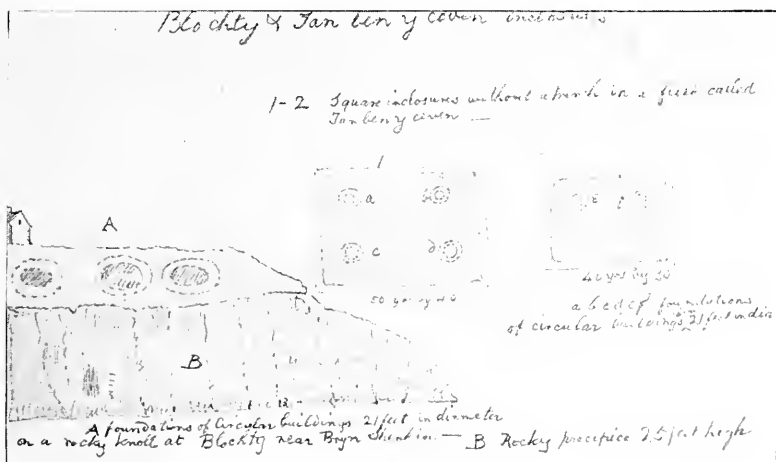 Blochty & Tan ben y cevn inclosures
1-2 Square inclosures without a trench in a field called
Tan ben y cevn —
1
a b
c d
e f
50 yds by 40
40 yds by 30
a b c d e f foundations
of circular buildings 21 feet in dia
A
B
A foundations of Circular buildings 21 feet in diameter
on a rocky knoll at Blochty near Bryn — B Rocky precipice 25 feet high